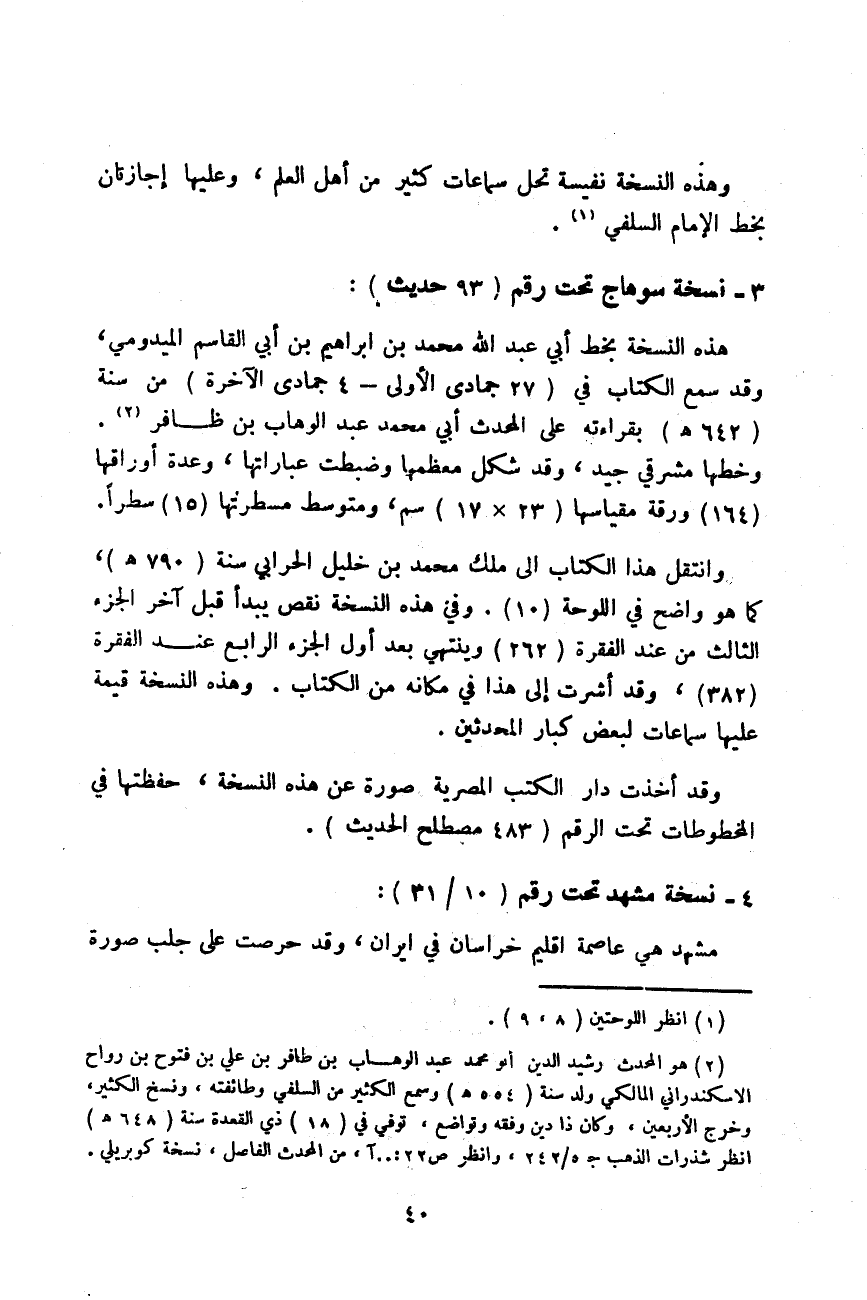 وهذه النسخة نفيسة تحل سماعات كثير من أهل العلم ، وعليها إجازتان
بخط الإمام السلفي (١) .
٣ ـ نسخة سوهاج تحت رقم ( ٩٣ حديث ) :
هذه النسخة بخط أبي عبد الله محمد بن ابراهيم بن أبي القاسم الميدومي،
وقد سمع الكتاب في ( ٢٧ جمادى الأولى – ٤ جمادى الآخرة ) من سنة
( ٦٤٢ ﻫ ) بقراءته على المحدث أبي محمد عبد الوهاب بن ظـــافر (٢) .
وخطها مشرقي جيد ، وقد شكل معظمها وضبطت عباراتها ، وعدة أوراقها
(١٦٤) ورقة مقياسها ( ٢٣ × ١٧ ) سم، ومتوسط مسطرتها (١٥) سطراً.
وانتقل هذا الكتاب الى ملك محمد بن خليل الحرابي سنة ( ٧٩٠ ﻫ )،
كما هو واضح في اللوحة (١٠) . وفي هذه النسخة نقص يبدأ قبل آخر الجزء
الثالث من عند الفقرة ( ٢٦٢ ) وينتهي بعد أول الجزء الرابع عنـــد الفقرة
(٣٨٢) ، وقد أشرت إلى هذا في مكانه من الكتاب . وهذه النسخة قيمة
عليها سماعات لبعض كبار المحدثين .
وقد أخذت دار الكتب المصرية صورة عن هذه النسخة ، حفظتها في
المخطوطات تحت الرقم ( ٤٨٣ مصطلح الحديث ) .
٤ ـ نسخة مشهد تحت رقم ( ١٠ / ٣١ ) :
مشهد هي عاصمة اقليم خراسان في ايران ، وقد حرصت على جلب صورة
(١) انظر اللوحتين ( ٨ ، ٩ ) .
(٢) هو المحدث رشيد الدين أبو محمد عبد الوهـــاب بن ظافر بن علي بن فتوح بن رواح
الاسكندراني المالكي ولد سنة ( ٥٥٤ ﻫ ) وسمع الكثير من السلفي وطائفته ، ونسخ الكثير،
وخرج الأربعين ، وكان ذا دين وفقه وتواضع ، توفي في ( ١٨ ) ذي القعدة سنة ( ٦٤٨ ﻫ )
انظر شذرات الذهب جـ ٢٤٢/٥ ، وانظر ص٢٢:..آ ، من المحدث الفاصل ، نسخة كوبريلي .
٤٠